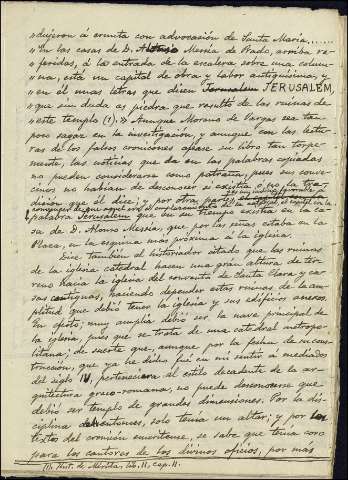 »dujeron á ermita con advocación de Santa María, ......
»En las casas de D. Alonso Mesía de Prado, arriba re-
»feridas, á la entrada de la escalera sobre una colum-
»na, está un capitel de obra y labor antiquísima, y
»en él unas letras que dicen Jerusalem JERUSALEM,
»que sin duda es piedra que resultó de las ruinas de
»este templo (1).» Aunque Moreno de Vargas sea tan
poco sagaz en la investigación, y aunque con las lectu-
ras de los falsos cronicones afease su libro tan torpe-
mente, las noticias que da en las palabras copiadas
no pueden considerarse como patrañas, pues sus conve-
cinos no habían de desconocer si existía o no la tra-
dición que él dice; y por otra parte
palabra Jerusalem que en su tiempo existía en la ca-
sa de D. Alonso Mesía, que por las señas estaba en la
Plaza, en la esquina más próxima á la iglesia.
Dice también el historiador citado que las ruinas
de la iglesia catedral hacen una gran altura de ter-
reno hacia la iglesia del convento de Santa Clara y ca-
sas contiguas, haciendo depender estas ruinas de la am-
plitud que debió tener la iglesia y sus edificios anexos.
En efecto; muy amplia debió ser la nave principal de
la iglesia, pues que se trata de una catedral metropo-
litana; de suerte que, aunque por la fecha de su cons-
trucción, que ya he dicho fué en mi sentir á mediados
del siglo IV, perteneciera al estilo decadente de la ar-
quitectura greco-romana, no puede desconocerse que
debió ser templo de grandes dimensiones. Por la dis-
ciplina de entonces, solo tenía un altar; y por los
textos del cronicón emeritense, se sabe que tenía coro
para los cantores de los divinos oficios, por más
(1) Hist. de Mérida, lib. II, cap. 11.